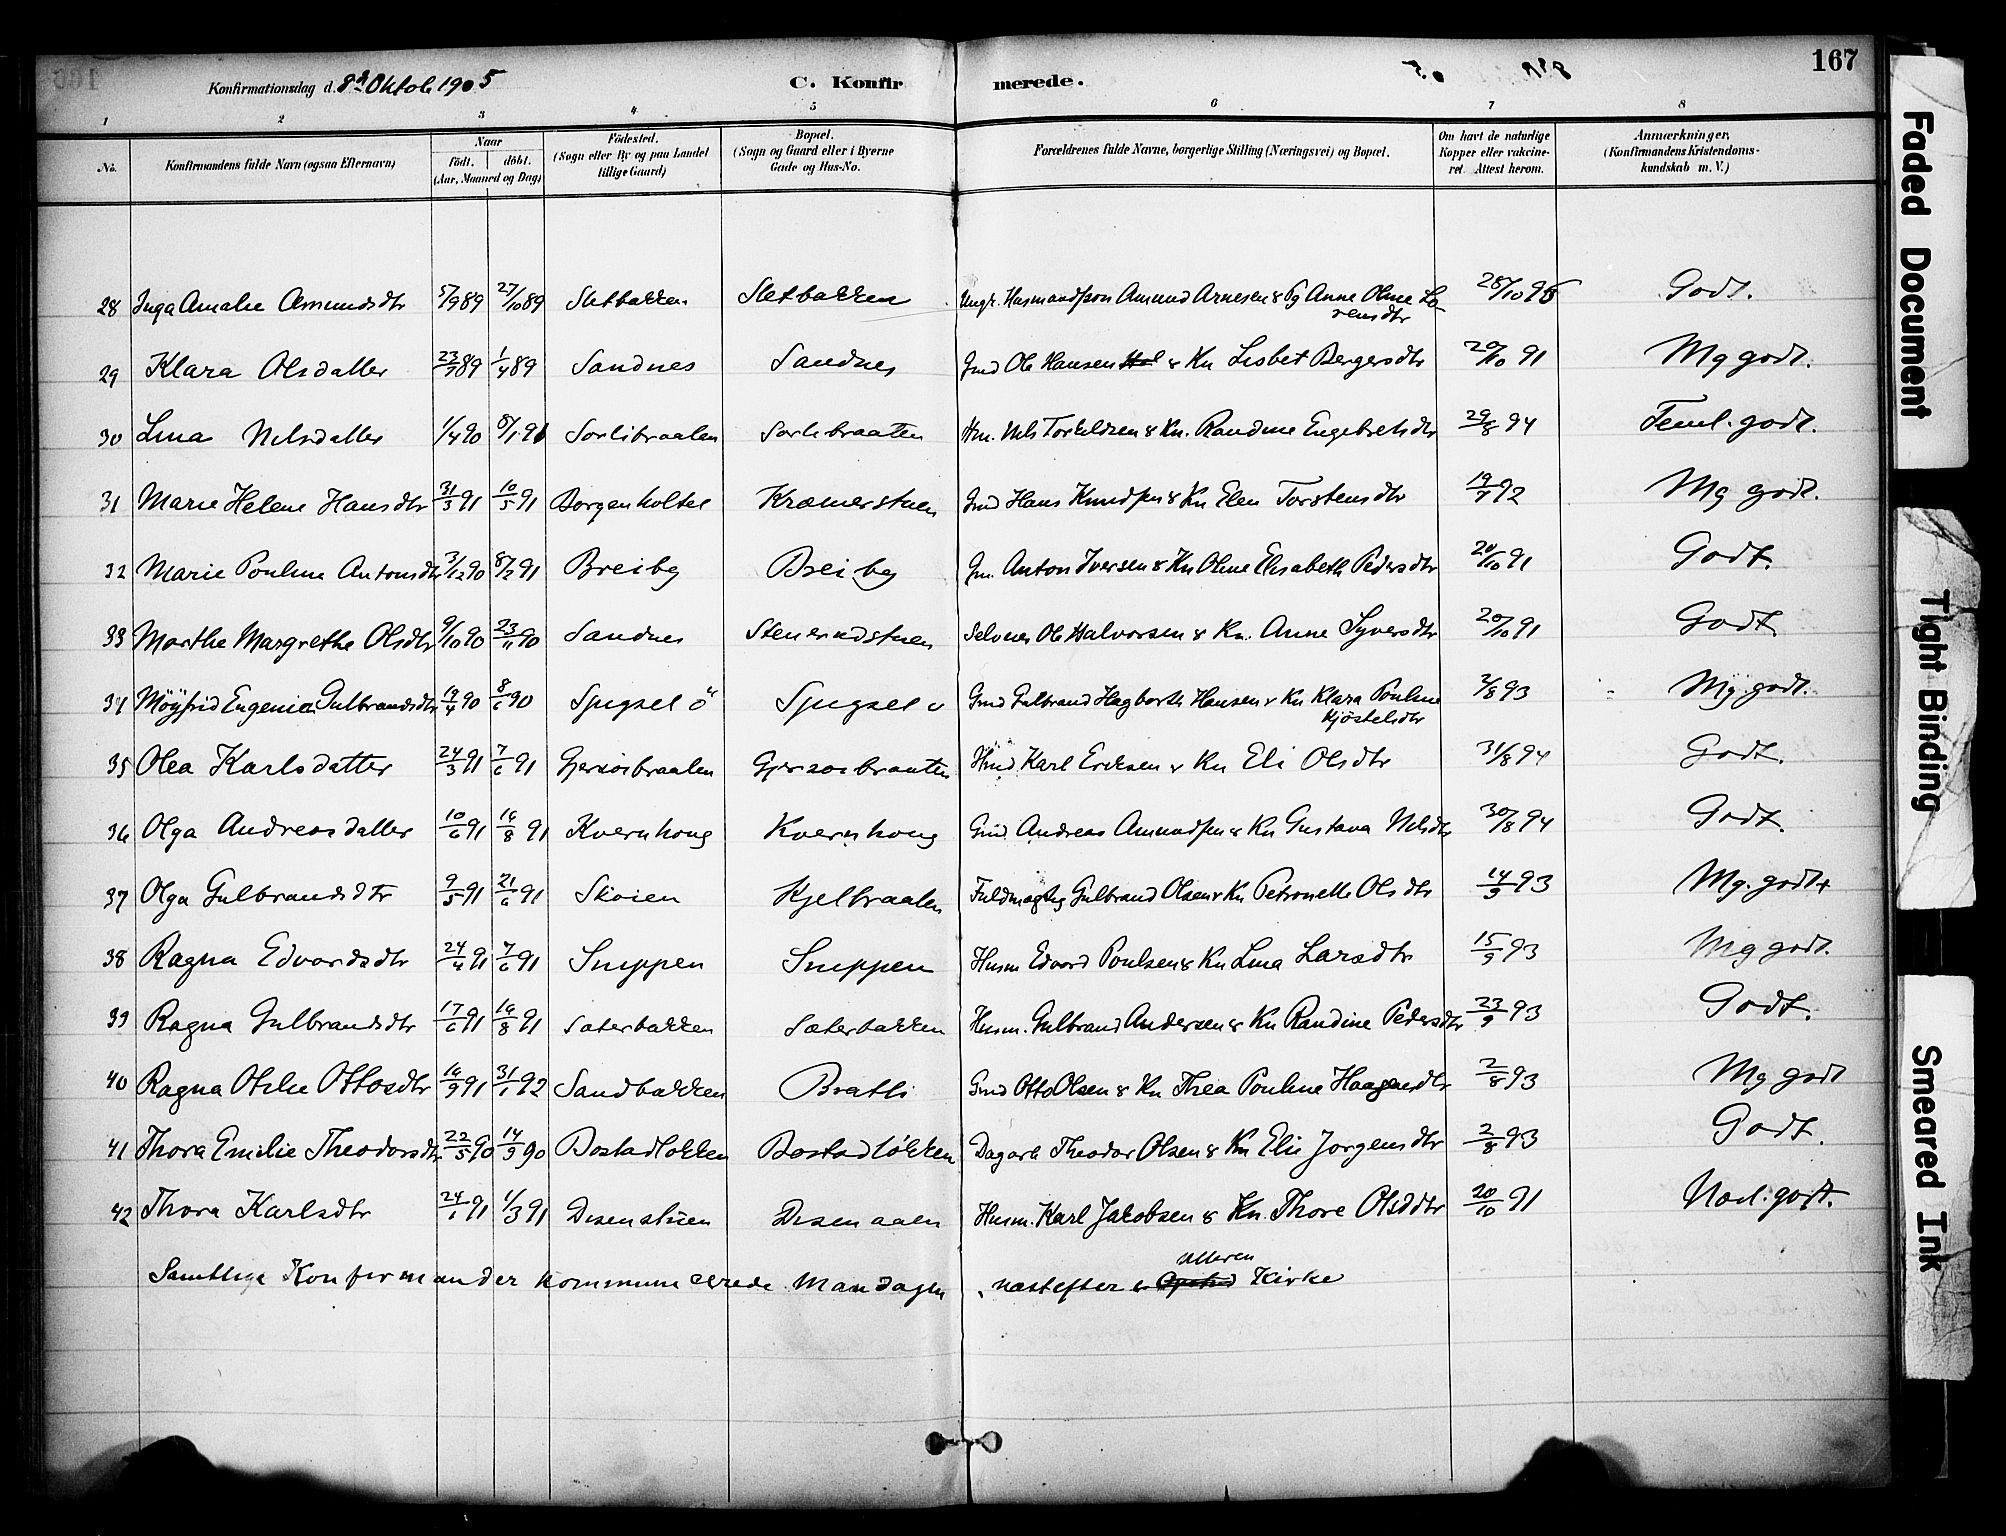 167
Konfirmationsdag d. 8de Oktob. 1905 C. Konfirmerede.
1 2 3 4 5 6 7 8
No. Konfirmandens fulde Navn (ogsaa Efternavn) Naar født. døbt. (Aar, Maaned og Dag) Fødested. (Sogn eller By og paa Landet tillige Gaard) Bopæl. (Sogn og Gaard eller i Byerne Gade og Hus-No. Forældrenes fulde Navne, borgerlige Stilling (Næringsvei) og Bopæl. Om havt de naturlige Kopper eller vakcineret. Attest herom. Anmærkninger, (Konfirmandens Kristendomskundskab m. V.)
28 Inga Amalie Amundsdtr 5/9 89 27/10 89 Sletbakken Sletbakken Ungk. Husmandssøn Amund Arnesen & Pg Anne Oline Larensdtr 28/10 95 Godt.
29 Klara Olsdatter 23/2 89 1/4 89 Sandnes Sandnes Gmd Ole Hansen & Kn Lisbet Bergersdtr 20/10 91 Mg godt.
30 Lina Nilsdatter 1/4 90 8/1 91 Sorlibraaten Sorlibraaten Hm. Nils Torkildsen & Kn. Randine Engebretsdtr 29/8 94 Teml. godt.
31 Marie Helene Hansdtr 31/3 91 10/5 91 Borgenholtet Kræmerstuen Gmd Hans Knudsen & Kn Elen Torstensdtr 19/7 92 Mg godt.
32 Marie Pouline Antonsdtr 3/12 90 8/2 91 Breiby Breiby Gm. Anton Iversen & Kn Oline Elisabeth Pedersdtr 20/10 91 Godt.
33 Marthe Margrethe Olsdtr 9/10 90 23/11 90 Sandnes Stenerudstuen Selveier Ole Halvorsen & Kn. Anne Syversdtr 20/10 91 Godt
34 Møyfrid Eugenia Gulbrandsdtr 19/4 90 8/6 90 Spigsel ø Spigsel ø Gmd Gulbrand Hagbarth Hansen & Kn Klara Pouline Kjöstelsdtr 2/8 93 Mg. godt.
35 Olea Karlsdatter 24/3 91 7/6 91 Gjersøibraaten Gjersøibraaten Hmd Karl Eriksen & Kn Eli Olsdtr 31/8 94 Godt.
36 Olga Andreasdatter 10/6 91 16/8 91 Kvernhoug Kvernhoug Gmd Andreas Amundsen & Kn Gustava Nilsdtr 30/8 94 Godt.
37 Olga Gulbrandsdtr 9/5 91 21/6 91 Skøien Kjelbraaten Fuldmægtig Gulbrand Olsen & Kn Petronelle Olsdtr 14/9 93 Mg. godt+
38 Ragna Edvardsdtr 24/4 91 7/6 91 Snippen Snippen Husm Edvard Poulsen & Kn Lina Larsdtr 15/9 93 Mg godt.
39 Ragna Gulbrandsdtr 17/6 91 16/8 91 Sæterbakken Sæterbakken Husm. Gulbrand Andersen & Kn Randine Pedersdtr 23/9 93 Godt.
40 Ragna Otilie Ottosdtr 16/9 91 31/1 92 Sandbakken Bratli Gmd Otto Olsen & Kn Thea Pouline Haagensdtr 2/8 93 Mg godt
41 Thora Emilie Theodorsdtr 22/5 90 14/9 90 Bostadløkken Bostadløkken Dagarb Theodor Olsen & Kn Elie Jorgensdtr 2/8 93 Godt.
42 Thora Karlsdtr 24/1 91 1/3 91 Disenstuen Disenaaen Husm. Karl Jakobsen & Kn. Thore Olsddtr 20/10 91 Nœl. godt.
Ulleren
Samtlige Konfirmander kommunicerede Mandagen næstefter i Kirke
Faded Document
Tight Binding
Smeared Ink